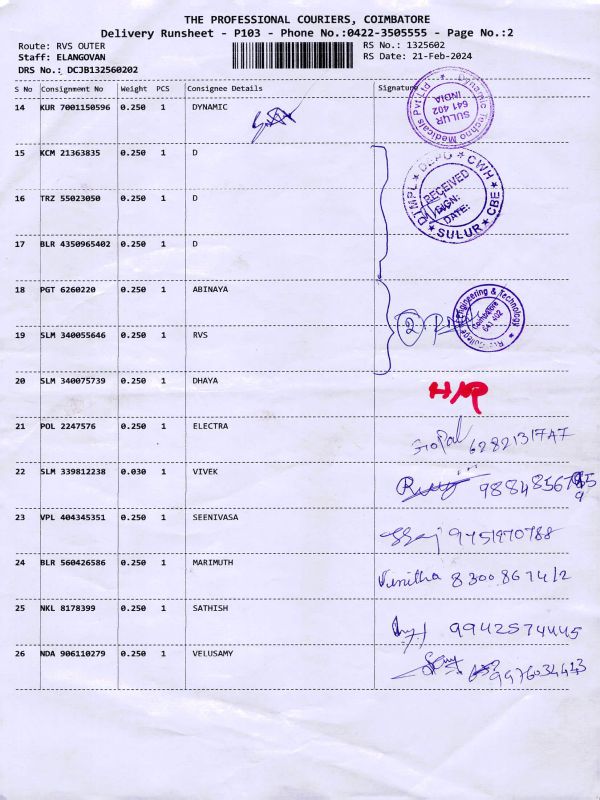 THE PROFESSIONAL COURIERS, COIMBATORE
Delivery Runsheet - P103 - Phone No.:0422-3505555 - Page No.:2
Route: RVS OUTER RS No.: 1325602
Staff: ELANGOVAN RS Date: 21-Feb-2024
DRS No.: DCJB132560202
S No Consignment No Weight PCS Consignee Details Signature
14 KUR 7001150596 0.250 1 DYNAMIC
Dynamic Techno Medicals Pvt Ltd
SULUR
641 402
INDIA
15 KCM 21363835 0.250 1 D
DTMPL * DEPO * CWH * CBE * SULUR *
RECEIVED
SIGN:
DATE:
16 TRZ 55023050 0.250 1 D
17 BLR 4350965402 0.250 1 D
18 PGT 6260220 0.250 1 ABINAYA
2
Engineering & Technology
Coimbatore
641 402
19 SLM 340055646 0.250 1 RVS
20 SLM 340075739 0.250 1 DHAYA
21 POL 2247576 0.250 1 ELECTRA Gopal 6282131747
22 SLM 339812238 0.030 1 VIVEK
23 VPL 404345351 0.250 1 SEENIVASA 9751970788
24 BLR 560426586 0.250 1 MARIMUTH Vinitha 8300867412
25 NKL 8178399 0.250 1 SATHISH 9942574445
26 NDA 906110279 0.250 1 VELUSAMY 9976034413